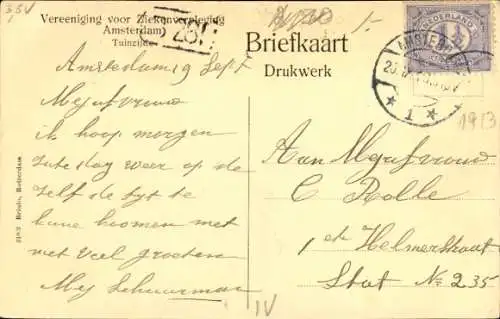 35V
Vereeniging voor Ziekenverpleging
Amsterdam)
Tuinzijde
Briefkaart
Drukwerk
NEDERLAND
1
1913
Amsterdam 9 Sept
Mejufvrouw
ik hoop morgen
Zaterdag weer op de
zelf de tyt te
kune koomen met
met veel groeten
Mej Schuurman
Aan Mejufvrouw
C Rolle
1 ste Helmerstraat
Stat No 235
IV